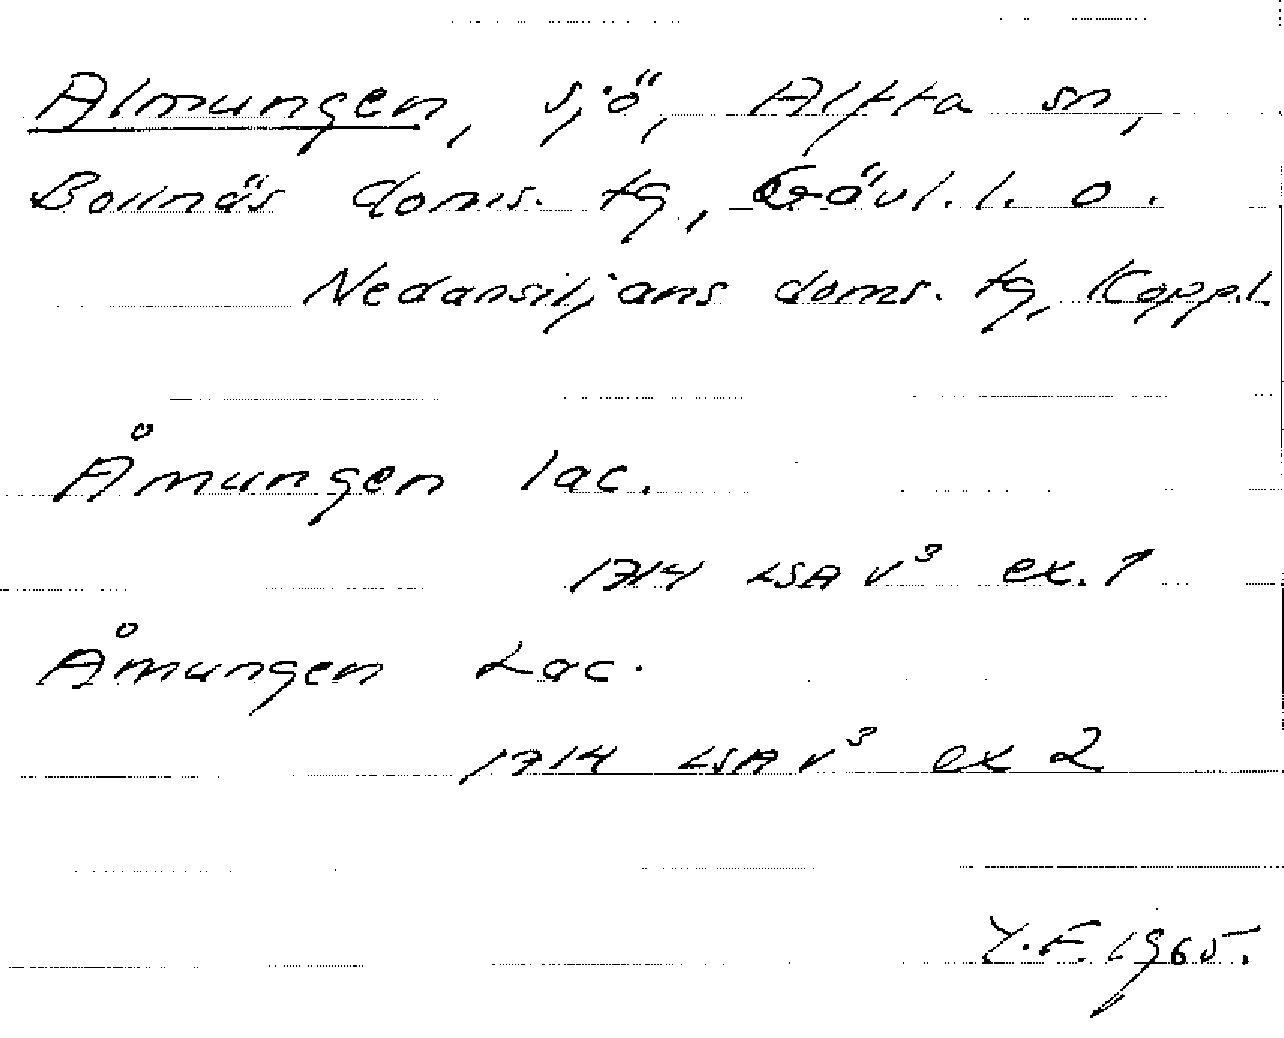 Almungen, sjö, Alfta sn,
Bollnäs doms. tg, Gävl. l. o.
Nedansiljans doms. tg, Koppl.
Åmungen lac.
1714 LSA V³ ex. 1
Åmungen Lac.
1714 LSA V³ ex 2
Y.F. 1965.